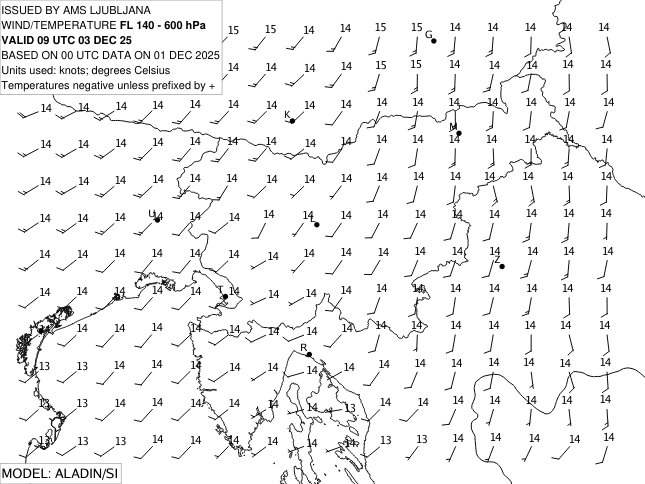 ISSUED BY AMS LJUBLJANA
WIND/TEMPERATURE FL 140 - 600 hPa
VALID 09 UTC 03 DEC 25
BASED ON 00 UTC DATA ON 01 DEC 2025
Units used: knots; degrees Celsius
Temperatures negative unless prefixed by +
15 15 14 14 15 15 G 14 14 14 14 14
14 14 14 14 15 15 14 14 14 14 14
14 14 14 14 14 14 14 K 14 14 14 14 14 14 14 14 14
14 14 14 14 14 14 14 14 14 14 14 M 14 14 14 14 14
14 14 14 14 14 14 14 14 14 14 14 14 14 14 14 14
14 14 14 U 14 14 14 14 14 L 14 14 14 14 14 14 14 14
14 14 14 14 14 14 14 14 14 14 14 14 14 Z 14 14 14
14 14 14 14 14 T 14 14 14 14 14 14 14 14 14 14 14
14 14 14 14 14 14 14 14 14 14 14 14 14 14 14 14
R
13 13 14 14 14 14 14 14 14 14 14 14 14 14 14 14
13 13 14 14 14 14 14 14 13 14 14 14 14 14 14 14
13 13 13 14 14 14 14 14 14 13 13 14 14 14 14 14
MODEL: ALADIN/SI